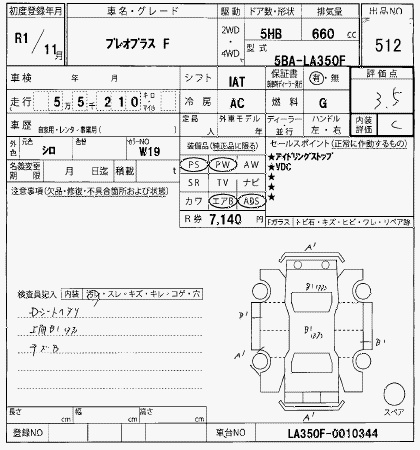 初度登録年月 車名・グレード 駆動 ドア数・形状 排気量 出品NO
R1/11月 プレオプラス F 2WD・4WD 5HB 660cc 512
型式 5BA-LA350F
車検 年 月 シフト IAT 保証書 有・無 評価点
走行 5万5千210 キロ・マイル 冷房 AC 燃料 G 3.5
車歴 自家用・レンタ・事業用( ) 定員 人 外車モデル 年 ディーラー・並行 ハンドル 左・右 内装評価 C
外色 元色 シロ 色替 カラーNO W19 装備品(純正品に限る) セールスポイント(正常に作動するもの)
名義変更期限 月 日迄 積載 t PS PW AW ★アイドリングストップ
注意事項(欠品・修復・不具合箇所および状態) SR TV ナビ ★VDC
カワ エアB ABS ★
★
★
R券 7,140円 Fガラス トビ石・キズ・ヒビ・ワレ・リペア跡
検査員記入 内装 汚れ・スレ・キズ・キレ・コゲ・穴
Dシートヘタリ
キズB
A'
B'
B'
B'
A'
A'
スペア
長さ cm 幅 cm 高さ cm
登録NO 車台NO LA350F-0010344